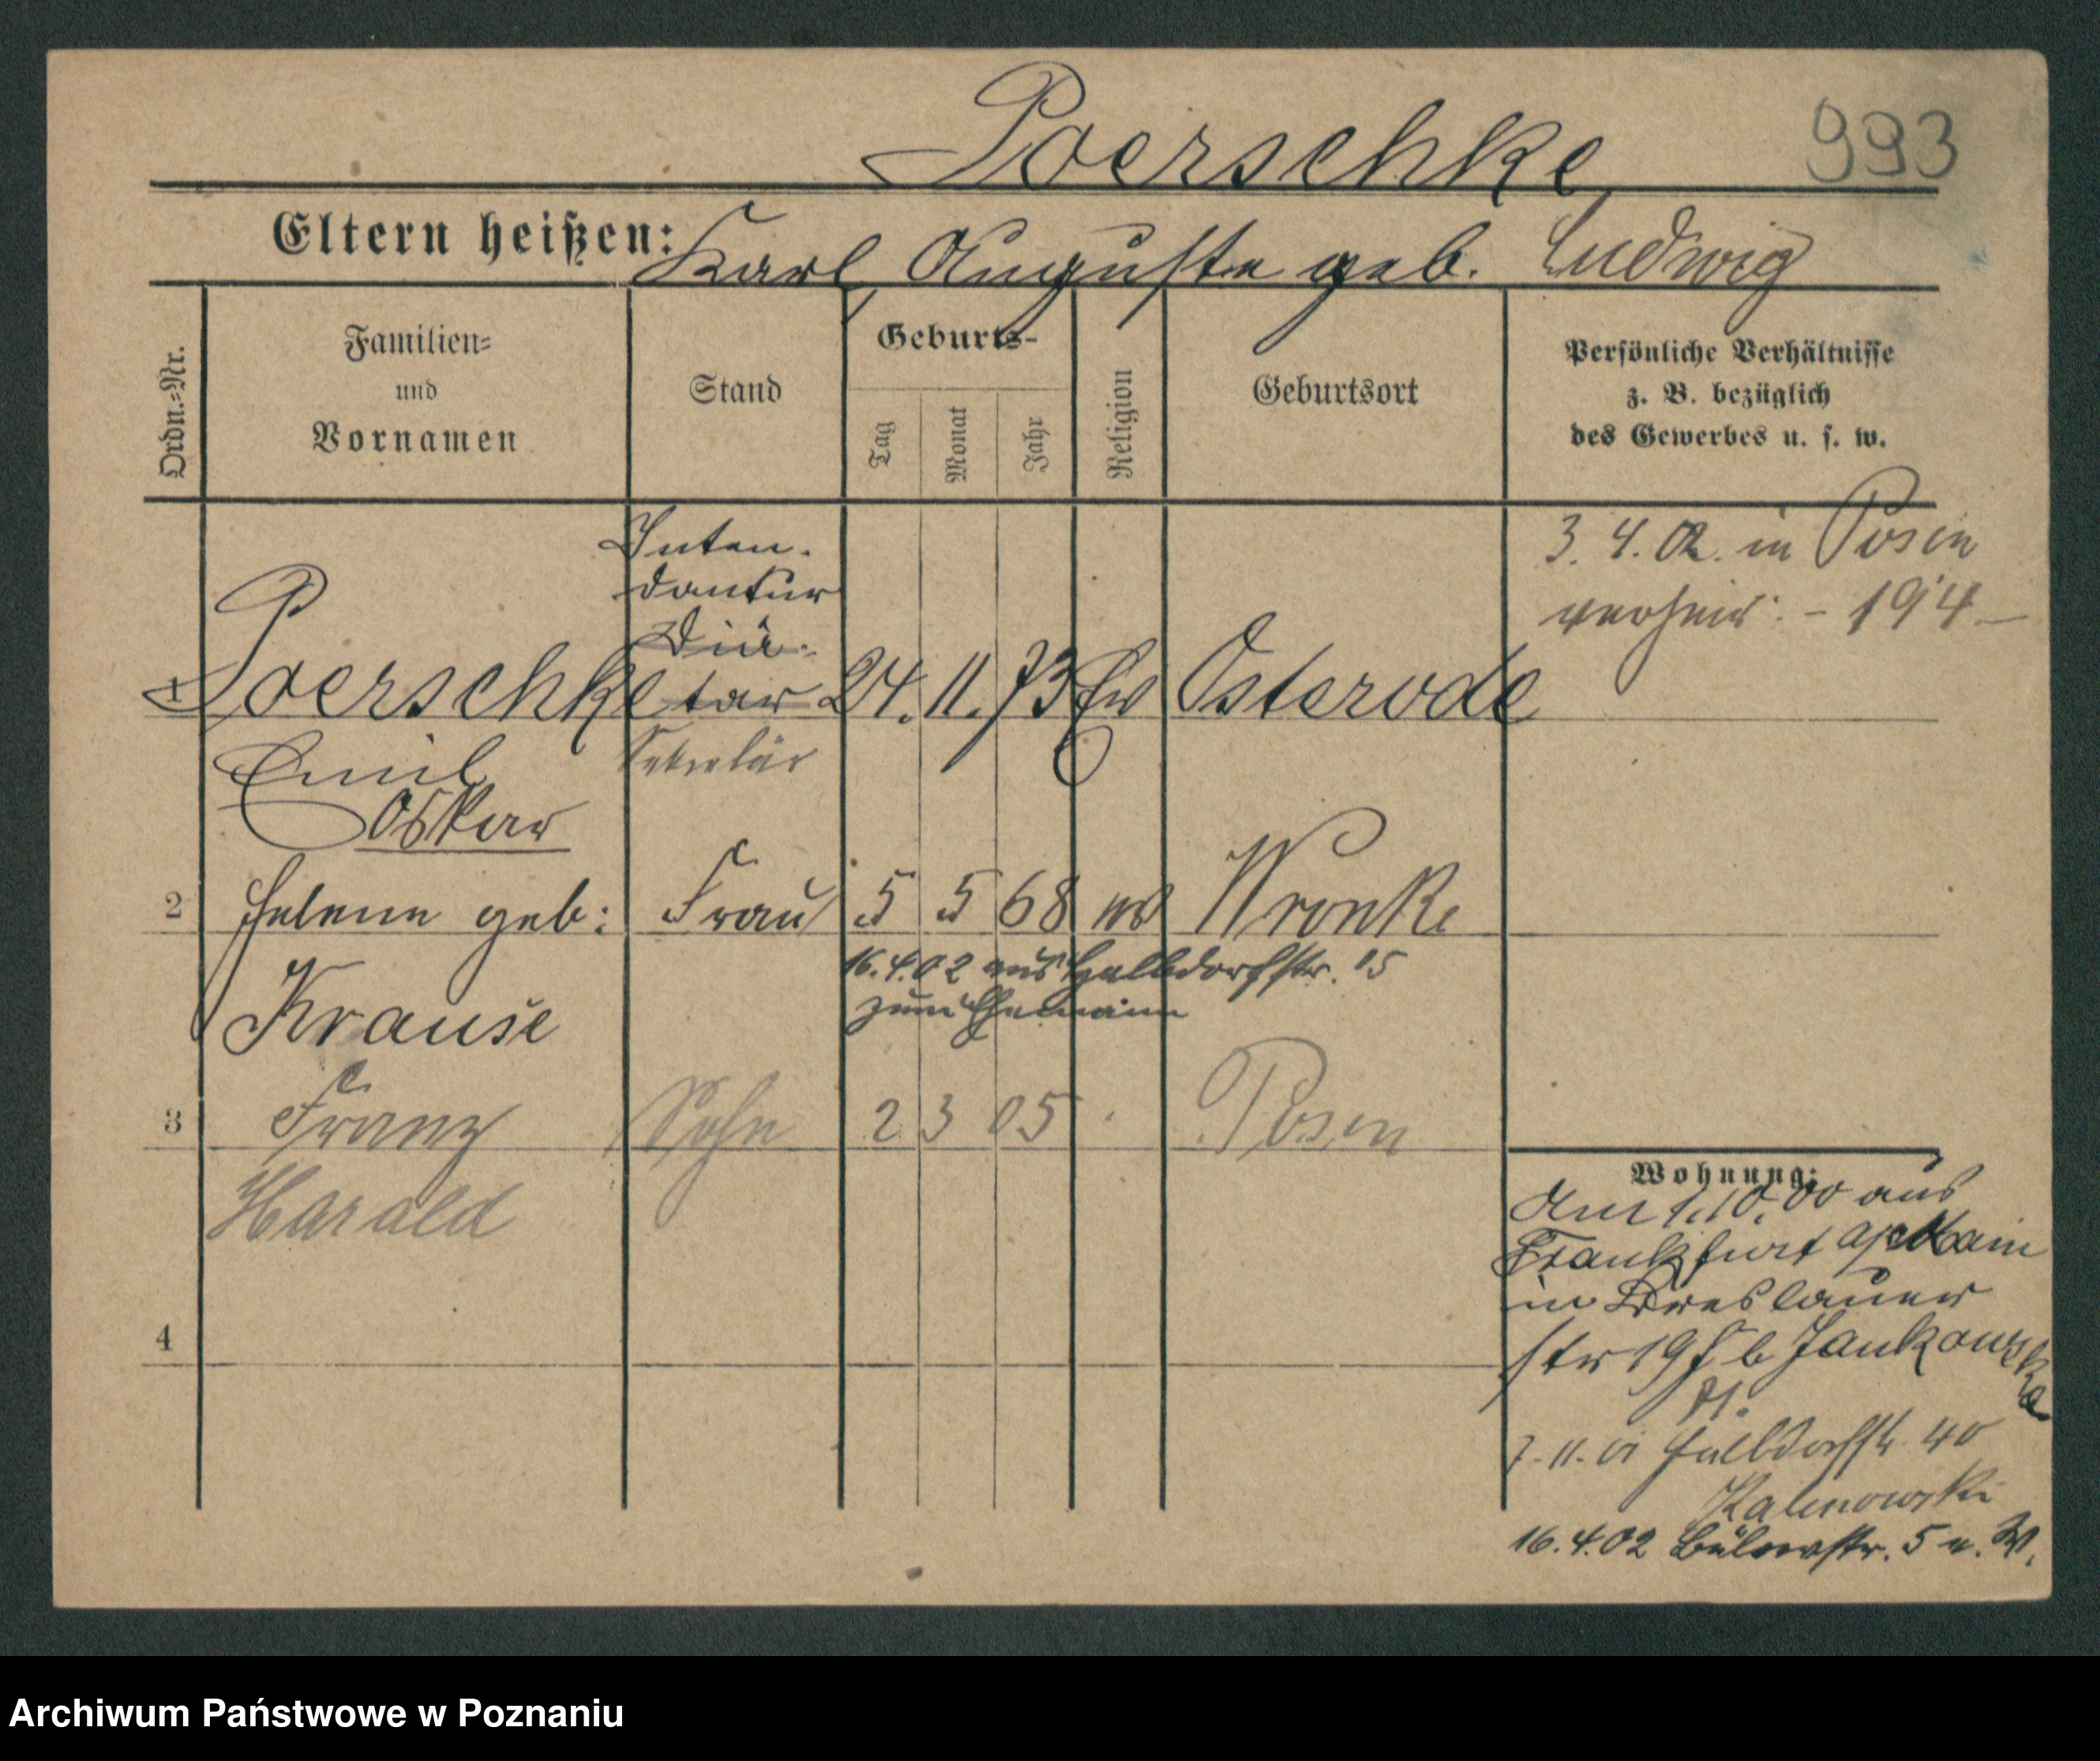 Poerschke 993
Eltern heißen: Karl, Auguste geb. Ludwig
Ordn.-Nr.
Familien-
und
Vornamen
Stand
Geburts-
Tag
Monat
Jahr
Religion
Geburtsort
Persönliche Verhältnisse
z. B. bezüglich
des Gewerbes u. s. w.
Inten-
dantur
Diä-
tar
Sekretär
3. 4. 02. in Posen
verheir. - 194 -
1 Poerschke 24. 11. 73 Ev Osterode
Emil
Oskar
2 Helene geb: Frau 5 5 68 Wronke
16.4.02 aus Halbdorfstr. 15
zum Ehemann
Krause
3 Franz Sohn 2 3 05 Posen
Harald
4
Wohnung:
Am 1.10.00 aus
Frankfurt a/Main
in Breslauer
str 19 b Jankowska
7. 11. 01 Halbdorfstr. 40
Kalinowski
16.4.02 Bülowstr. 5 u. W.
Archiwum Państwowe w Poznaniu